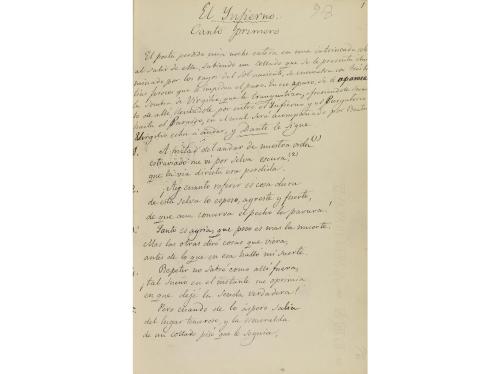 El Infierno.
Canto primero
1
El poeta perdido una noche entera en una intrincada selva
al salir de ella, subiendo un collado que se le presenta ilu-
minado por los rayos del sol naciente, se encuentra con tres
fieras que le impiden el paso. En su apuro, se le aparece
la sombra de Virgilio, que le tranquiliza, ofreciéndole
de allí, llevándole por entre el Infierno y el Purgatorio
hasta el Paraíso, en el cual será acompañado por Beatriz
Virgilio echa á andar, y Dante le sigue
1. A mitad del andar de nuestra vida (1)
extraviado me vi por selva oscura, (2)
que la vía directa era perdida.
2. ¡Ay, cuanto referir es cosa dura
de esta selva lo espeso, agreste y fuerte,
de que aun conserva el pecho la pavura!
Tanto es agria, que poco es mas la muerte.
Mas las otras diré cosas que viera,
antes de lo que en esa hallo mi suerte.
Repetir no sabré como allí fuera,
¡tal sueño en el instante me oprimia
en que dejé la senda verdadera!
Pero cuando de lo áspero salia
del lugar temeroso, y la
de un collado pisé que le seguia,